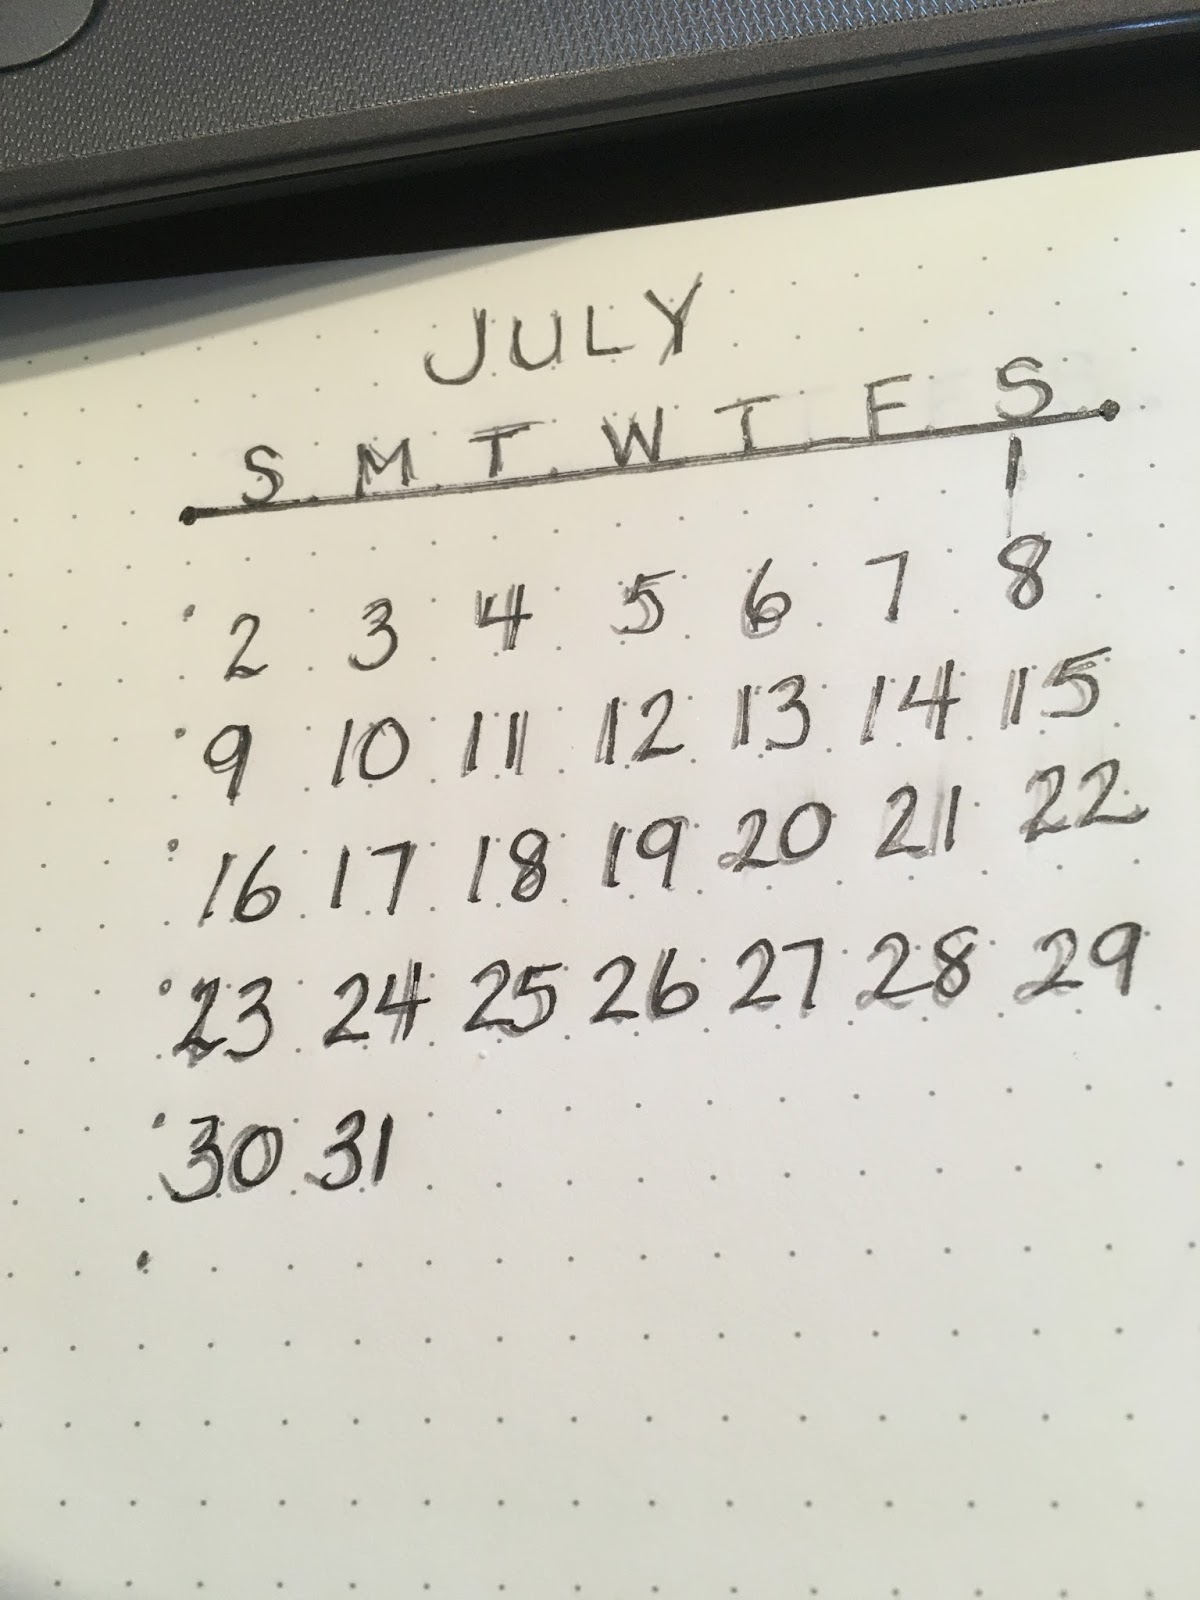 JULY
S M T W T F S
1
2 3 4 5 6 7 8
9 10 11 12 13 14 15
16 17 18 19 20 21 22
23 24 25 26 27 28 29
30 31